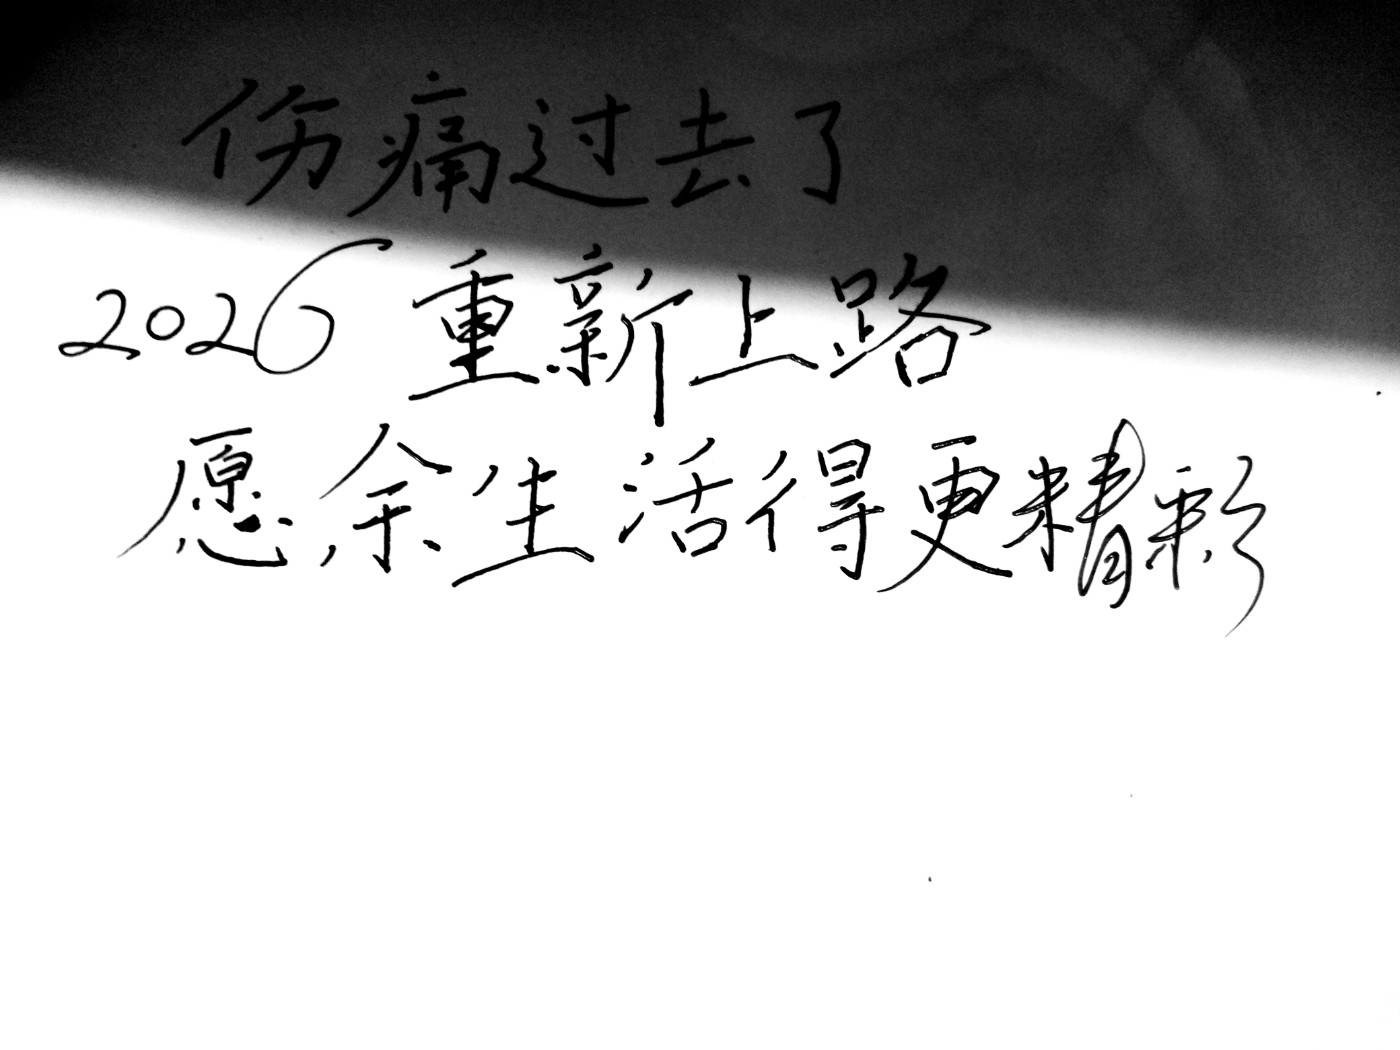 伤痛过去了
2026重新上路
愿余生活得更精彩